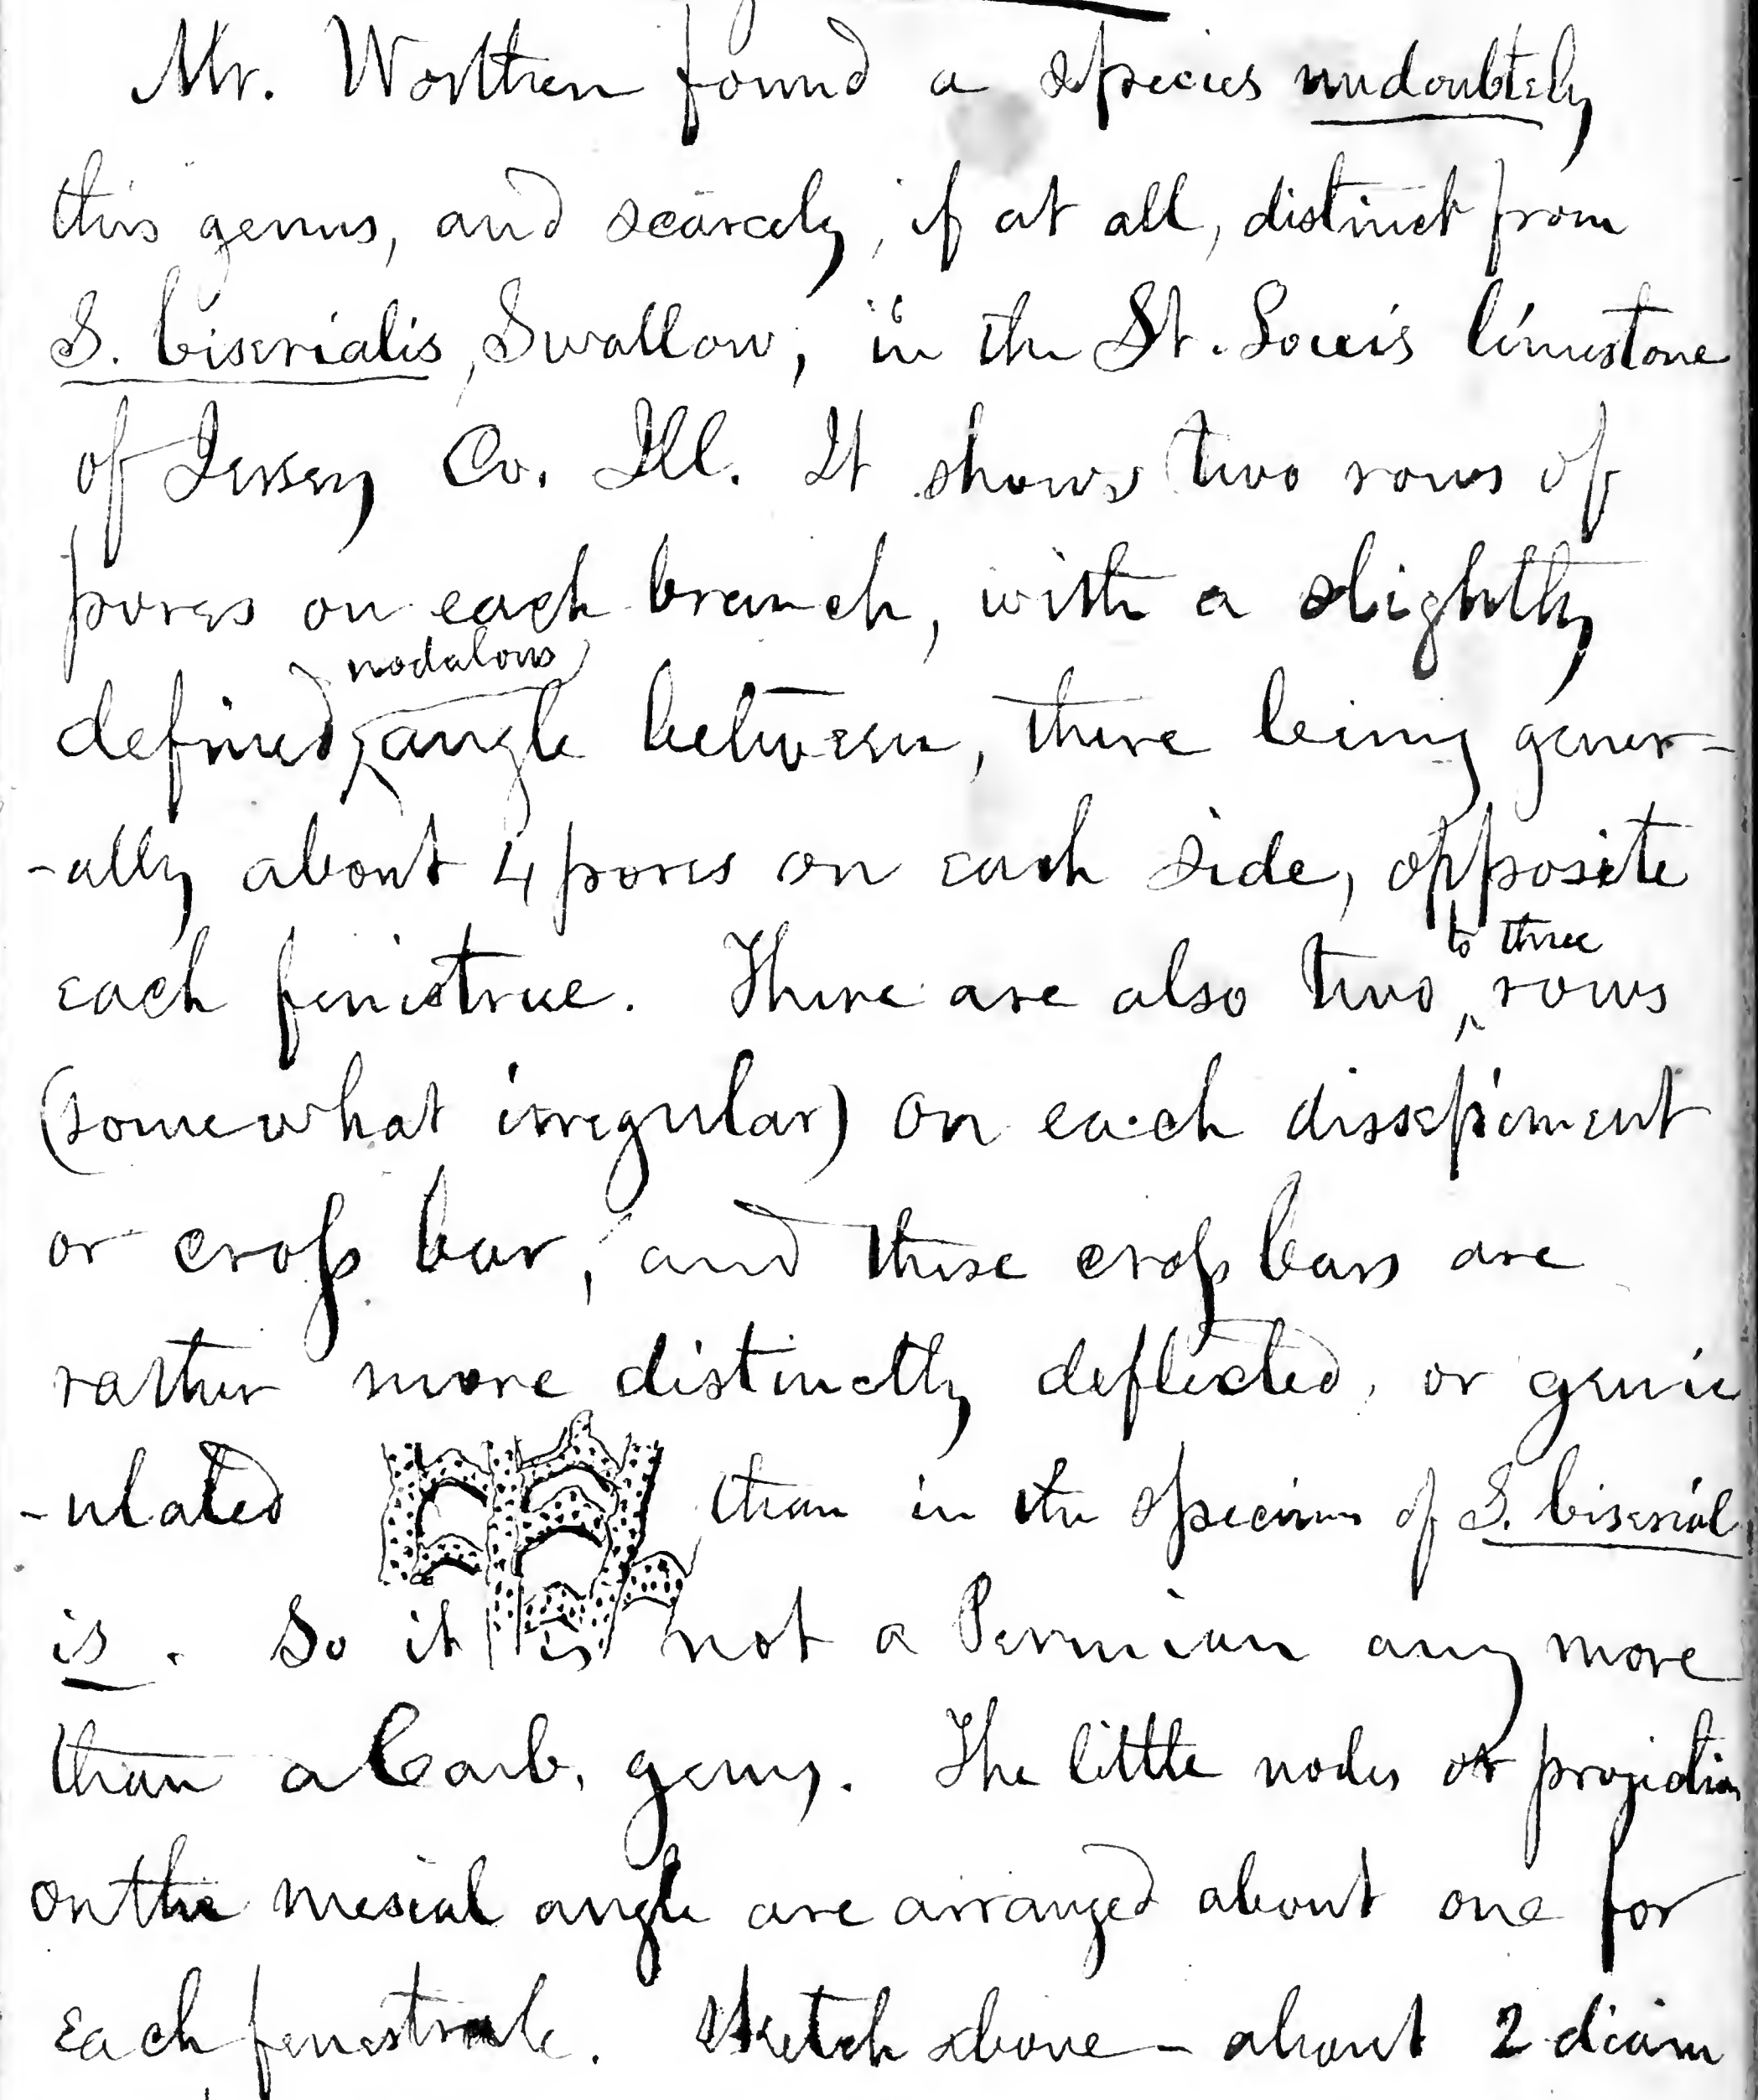 Mr. Worthen found a species undoubtely
this genus, and scarcely, if at all, distinct from
S. biserialis, Swallow, in the St. Louis limestone
of Jersey Co. Ill. It shows two rows of
pores on each branch, with a slightly
nodulous
defined angle between, there being gener-
-ally about 4 pores on each side, opposite
to three
each finistrue. There are also two ‸ rows
(somewhat irregular) on each dissepiment
or cross bar, and these cross bars are
rather more distinctly deflected, or genic
-ulated than in the specimens of S. biserial
is. So it is not a Permian any more
than a Carb. genus. The little nodes or projections
on the mesial angle are arranged about one for
each fenestrule. Sketch above - about 2 diam